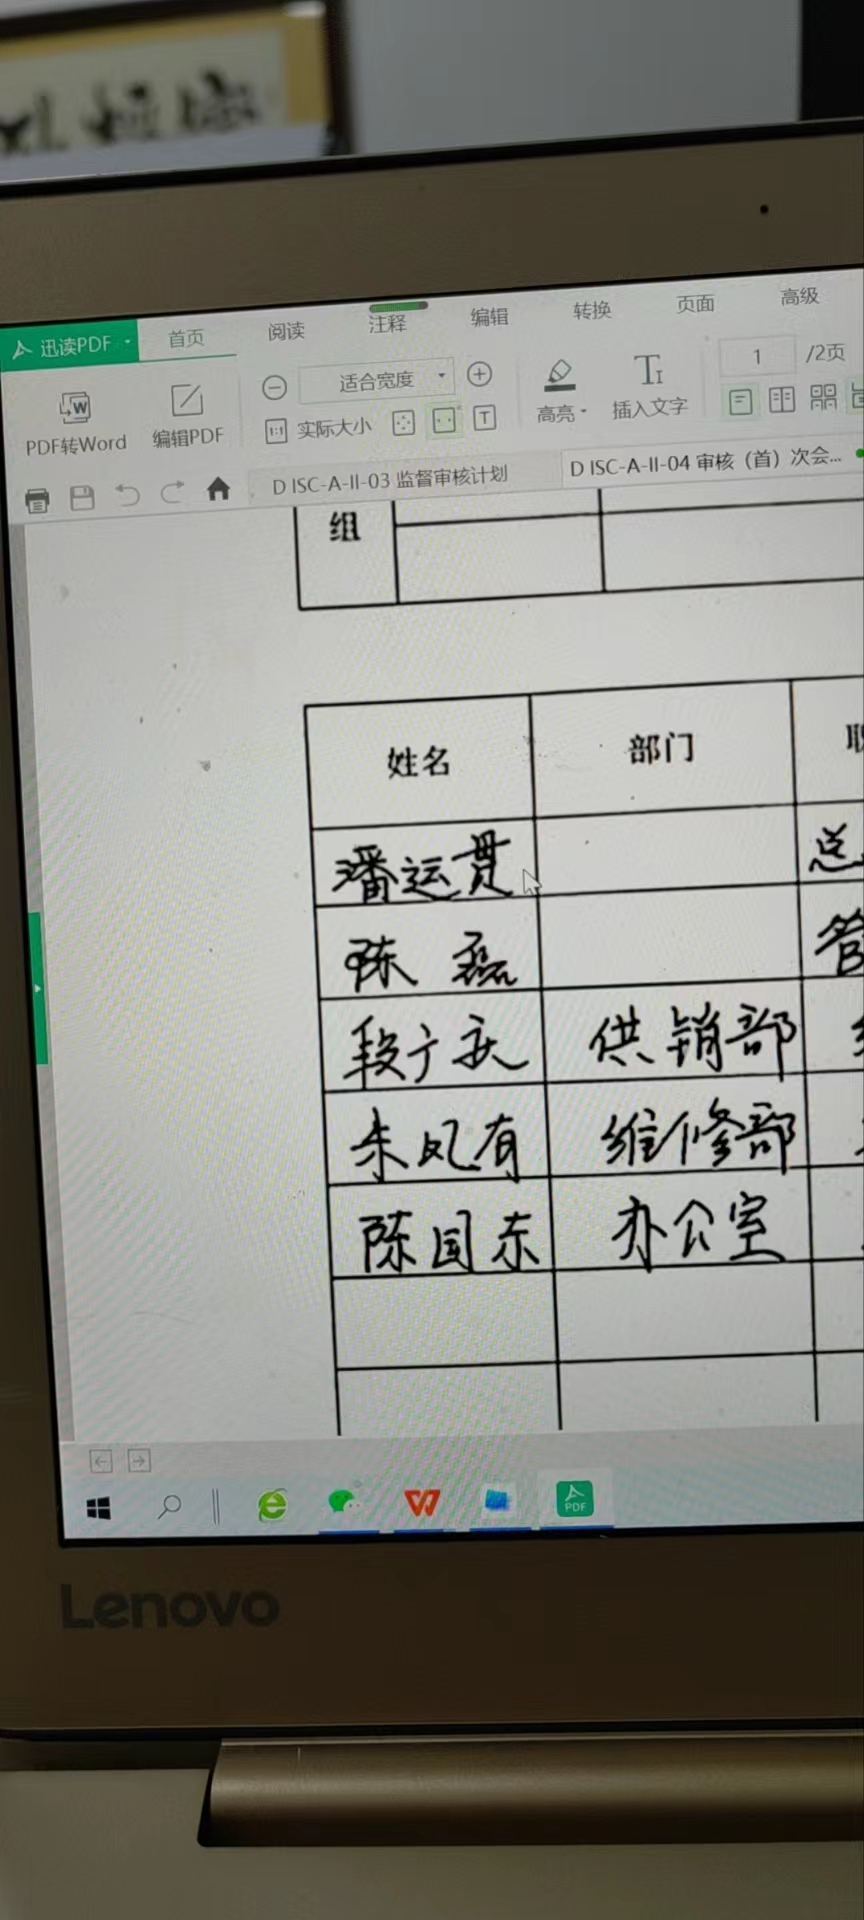 迅读PDF 首页 阅读 注释 编辑 转换 页面 高级
适合宽度 1 /2页
PDF转Word 编辑PDF 1:1 实际大小 高亮 插入文字
D ISC-A-II-03 监督审核计划 D ISC-A-II-04 审核（首）次会...
组
姓名 部门
潘运贯 总
陈磊 管
段广庆 供销部
朱凤有 维修部
陈国东 办公室
PDF
Lenovo